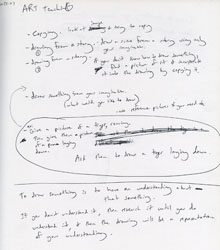 ART Teaching
- Copying: look at image & try to copy
- drawing from a story: draw a scene from a story using only
your imagination.
- drawing from a story: if you don't know how to draw something,
find a picture of it & incorporate
it into the drawing by copying it.
- draw something from your imagination.
(what would you like to draw)
use reference pictures if you need to.
- Give a picture of a tiger, running.
- Then give them a picture
of a puma laying
down.
Ask them to draw a tiger laying down.
To draw something is to have an understanding about
that something.
If you don't understand it, then research it until you do
understand it, & then the drawing will be a representation
of your understanding.